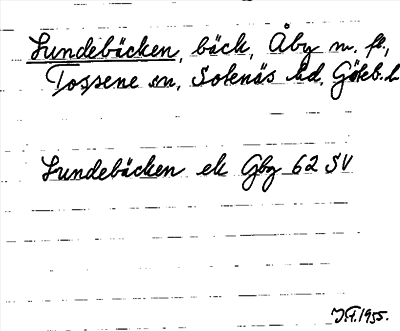 Lundebäcken, bäck, Åby m. fl.,
Tossene sn, Sotenäs hd. Göteb. l.
Lundebäcken ek Gbg 62 SV
J.F. 1955.